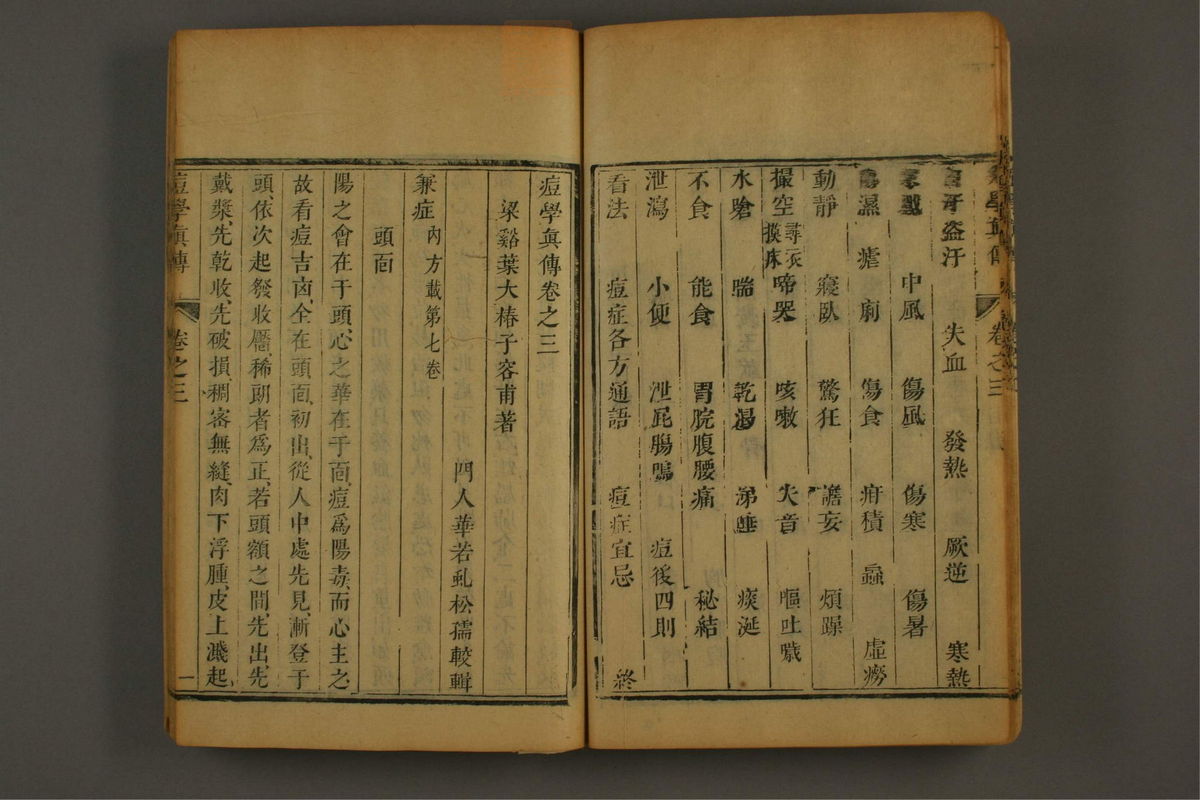 自汗盜汗 失血 發熱 厥逆 寒熱
中風 傷風 傷寒 傷暑
濕 瘧 痢 傷食 疳積 蟲 虛癆
動靜 寢臥 驚狂 譫妄 煩躁
撮空 尋衣摸床 啼哭 咳嗽 失音 嘔吐噦
水嗆 喘 乾渴 涕唾 痰涎
不食 能食 胃脘腹腰痛 秘結
泄瀉 小便 泄屁腸鳴 痘後四則
看法 痘症各方通語 痘症宜忌 終
卷之三
痘學眞傳卷之三
梁谿葉大椿子容甫著
門人華若虬松孺較輯
兼症 內方載第七卷
頭面
陽之會在于頭、心之華在于面、痘爲陽毒、而心主之、
故看痘吉凶、全在頭面、初出、從人中處先見、漸登于
頭、依次起發收靨、稀朗者爲正、若頭額之間、先出、先
戴漿、先乾收、先破損、稠密無縫、肉下浮腫、皮上濺起、
痘學眞傳 卷之三 一